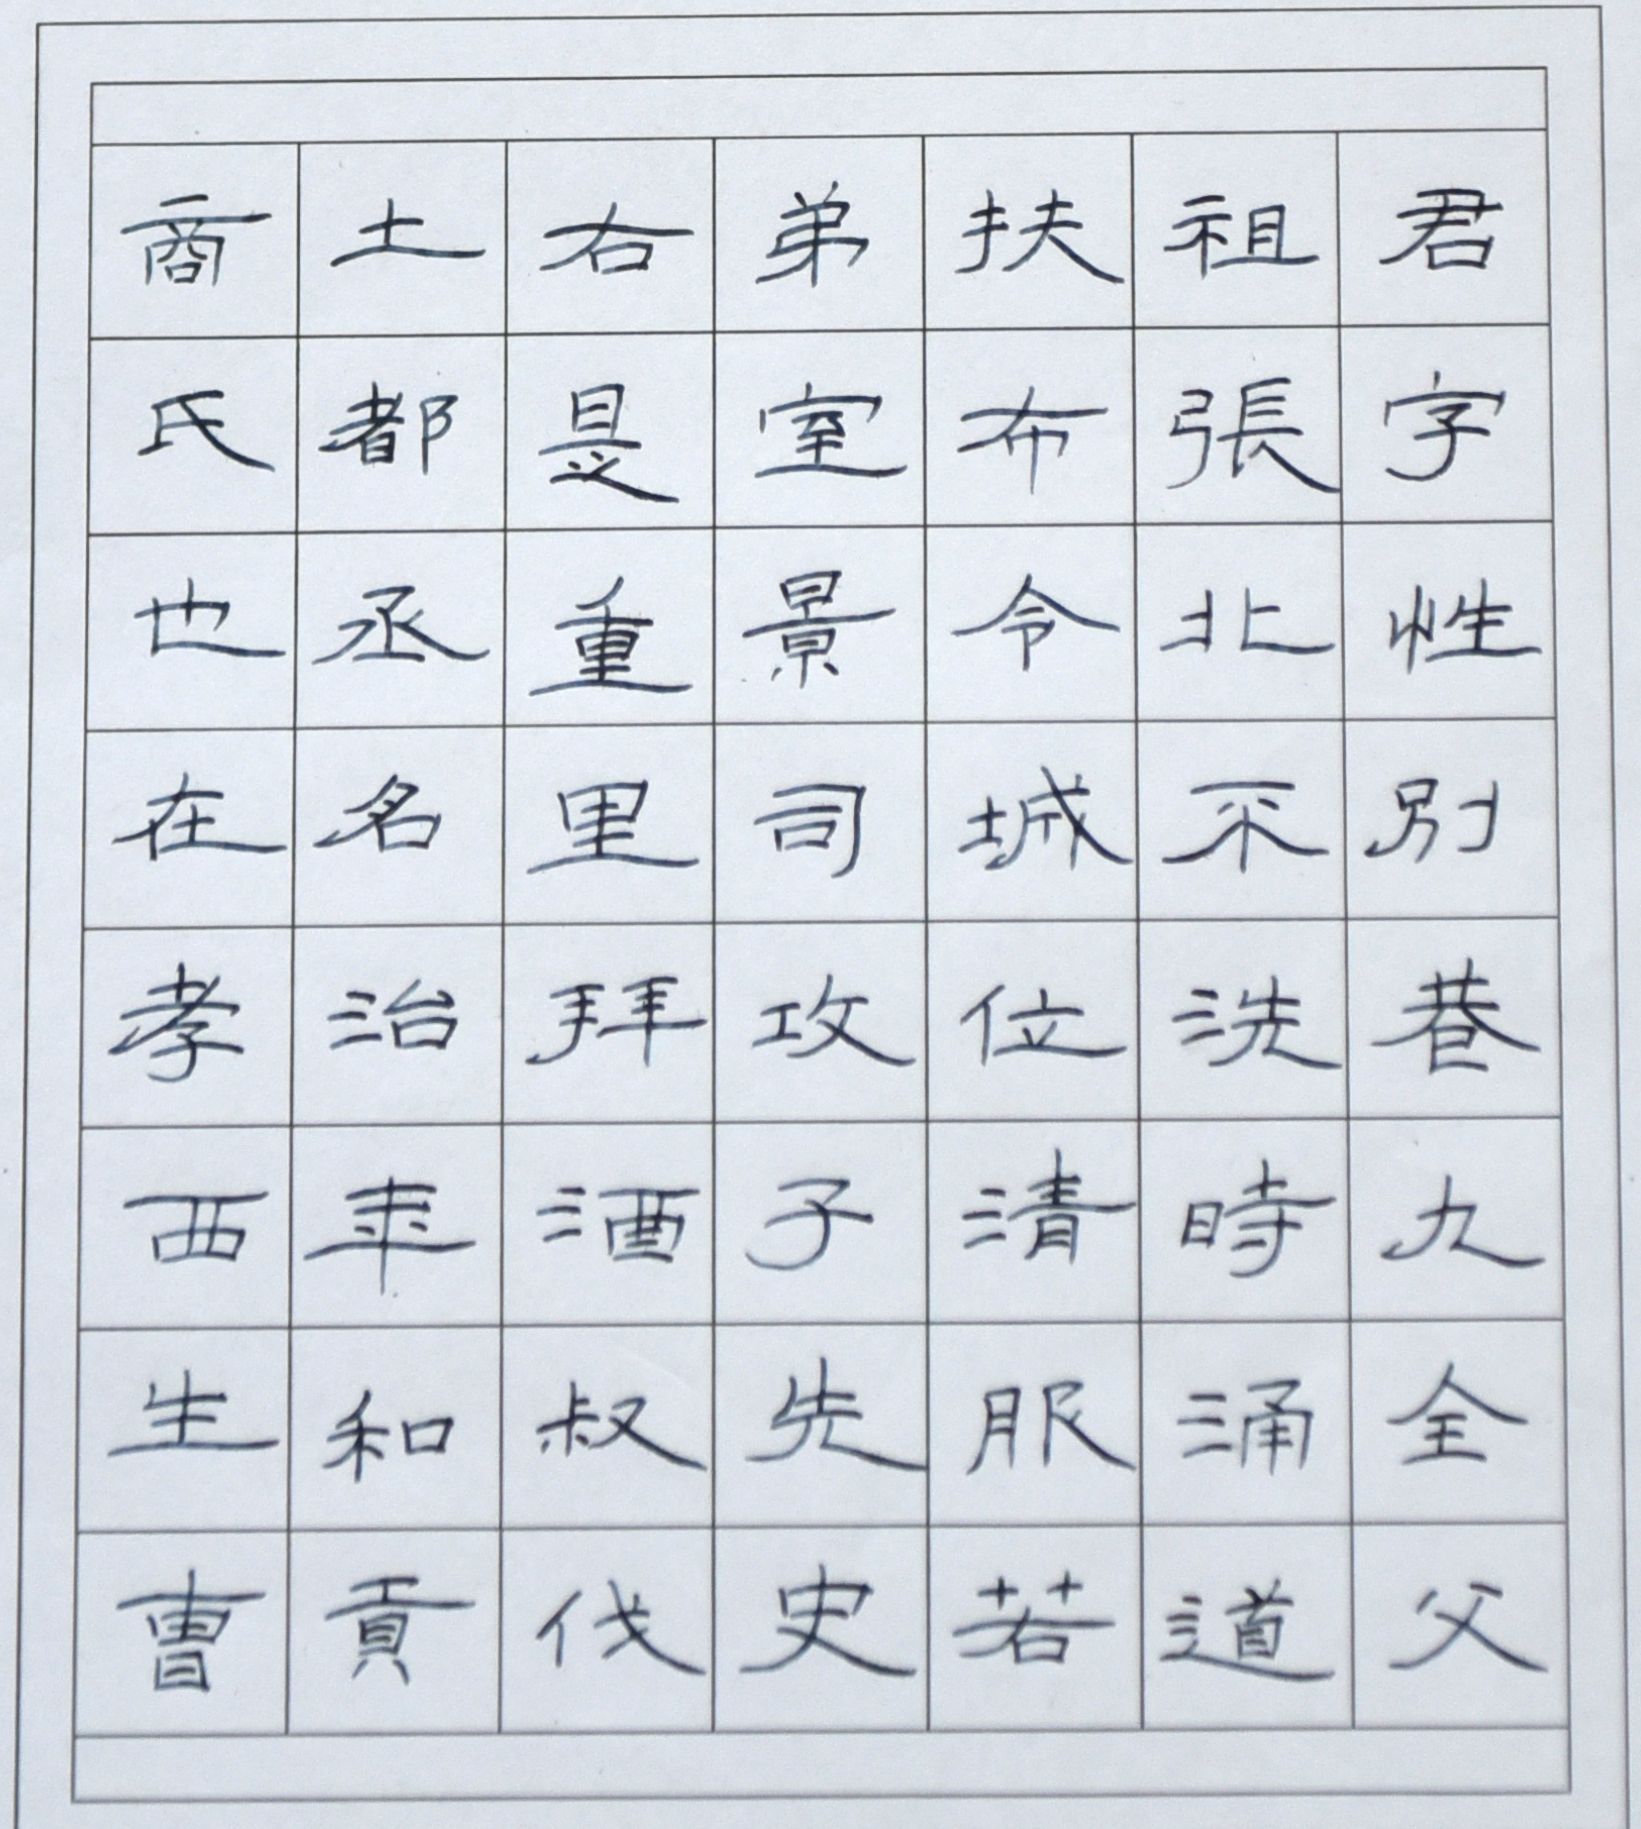 君字性別巷九全父
祖張北不洗時涌道
扶布令城位清服若
弟室景司攻子先史
右是重里拜酒叔伐
土都丞名治年和貢
商氏也在孝西生曹